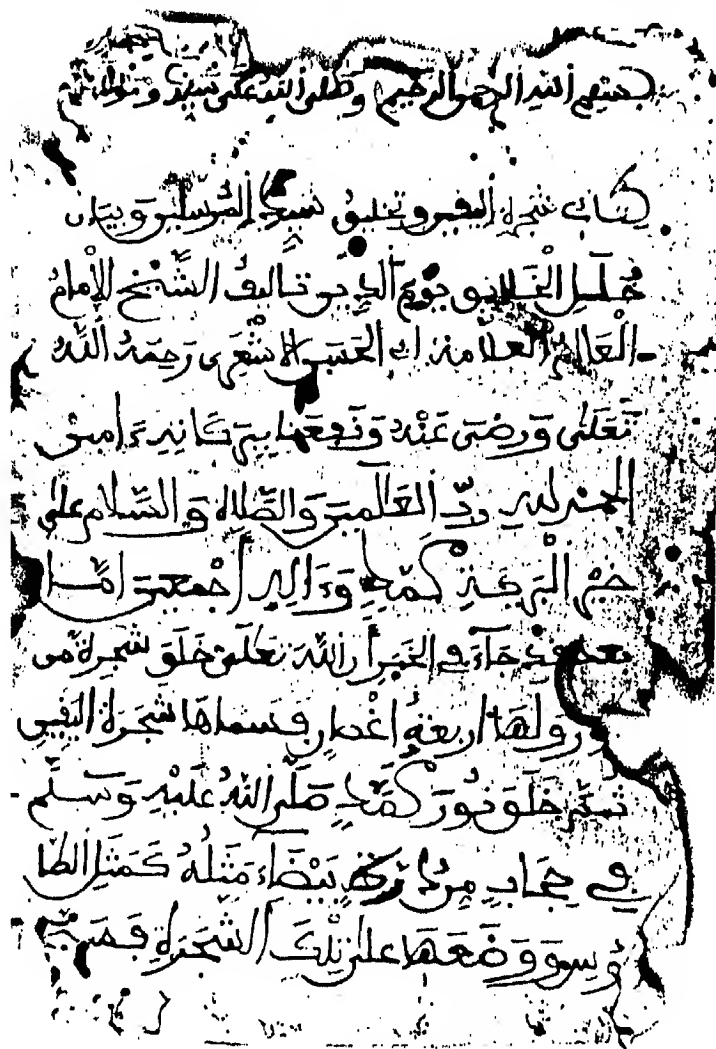 بسم الله الرحمن الرحيم وصلى الله على سيدنا ومولانا
كتاب شجرة اليفين وتخليق سيد المرسلين وبيان
حال الخلايق يوم الدين تاليف الشيخ الإمام
العالم العلامة ابي الحسن الاشعرى رحمه الله
تعلى ورضى عنه ونفعنا ببركاته ءامين
الحمد لله رب العالمين والصلاة والسلام على
خير البرية محمد وءاله أجمعين اما
بعد فقد جآء في الخبر أن الله تعلى خلق شجرة من
ولها اربعة اغصان فسماها شجرة اليفين
ثم خلق نور محمد صلى الله عليه وسلم
في حجاب من درة بيضآء مثله كمثل الطا
ؤس ووضعها على تلك الشجرة